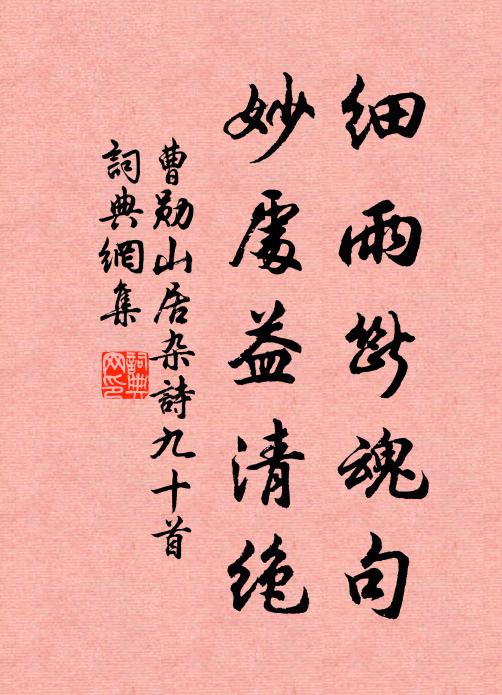 细雨断魂句
妙處益清绝
曹勋山居杂詩九十首
詞典網集
詞典
网印